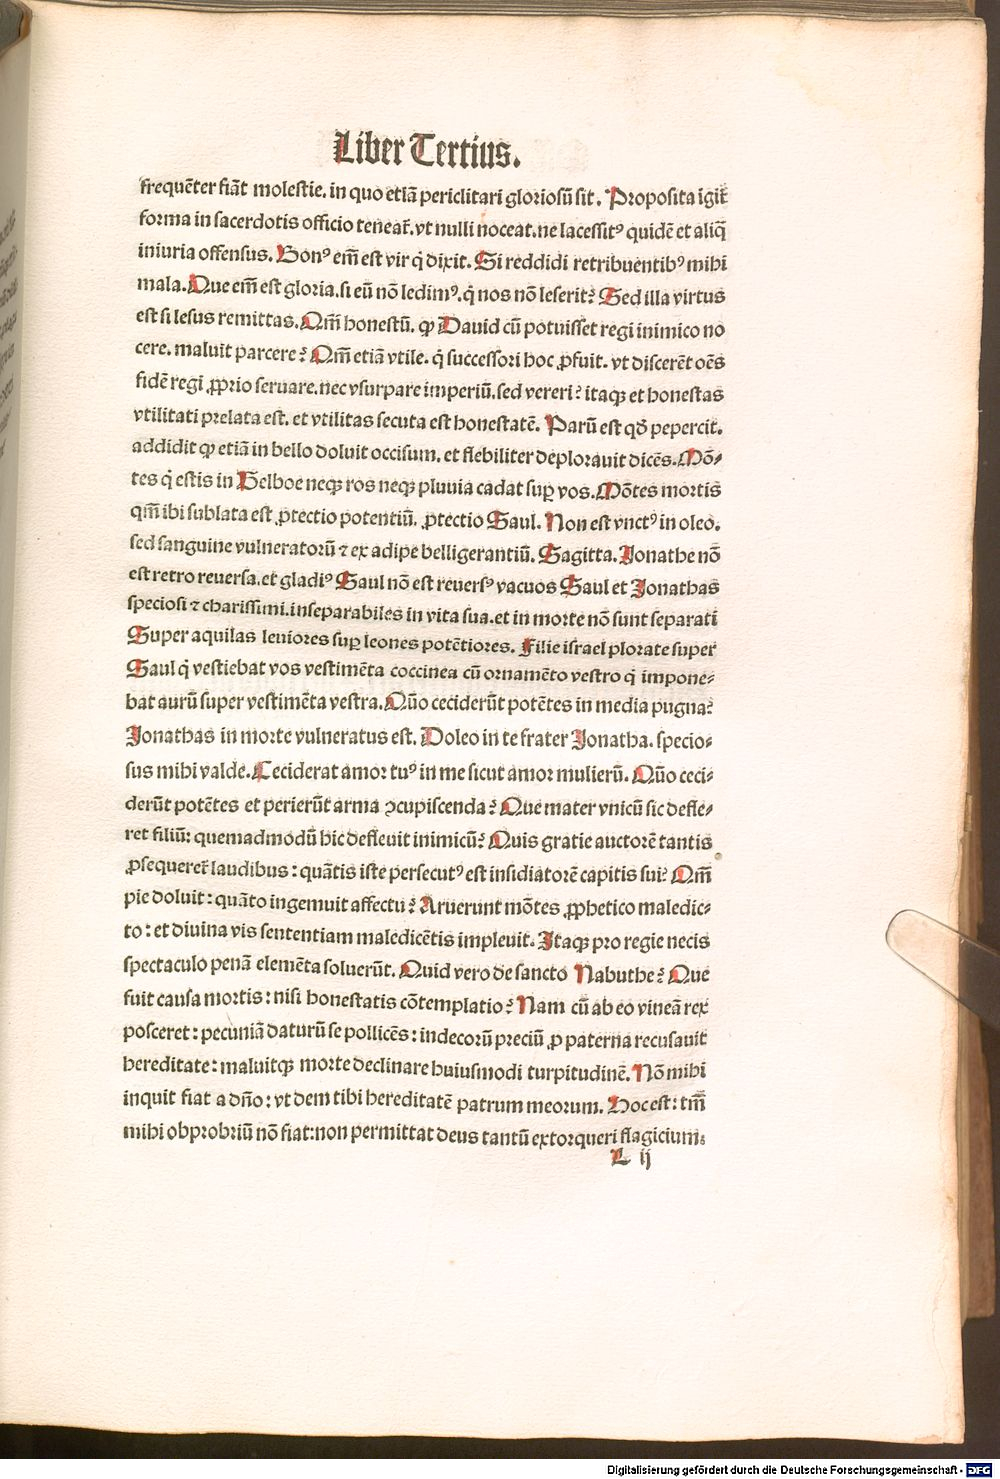 Liber Tertius.
frequēter fiāt molestie. in quo etiā periclitari gloriosū sit. Proposita igit᷑
forma in sacerdotis officio teneat᷑. vt nulli noceat. ne lacessitꝰ quidē et aliq̄
iniuria offensus. Bonꝰ em̄ est vir q̇ dixit. Si reddidi retribuentibꝰ mihi
mala. Que em̄ est gloria. si eū nō ledimꝰ. q̇ nos nō leserit? Sed illa virtus
est si lesus remittas. Qm̄ honestū. ꝙ Dauid cū potuisset regi inimico no
cere. maluit parcere? Qm̄ etiā vtile. q̇ successori hoc ꝓfuit. vt discerēt oēs
fidē regi ꝓprio seruare. nec vsurpare imperiū. sed vereri? itaqꝫ et honestas
vtilitati prelata est. et vtilitas secuta est honestatē. Parū est qd̄ pepercit.
addidit ꝙ etiā in bello doluit occisum. et flebiliter deplorauit dicēs. Mō⸗
tes q̇ estis in Gelboe neqꝫ ros neqꝫ pluuia cadat suꝑ vos. Mōtes mortis
qm̄ ibi sublata est ꝓtectio potentiū. ꝓtectio Saul. Non est vnctꝰ in oleo.
sed sanguine vulneratorū ⁊ ex adipe belligerantiū. Sagitta. Jonathe nō
est retro reuersa. et gladiꝰ Saul nō est reuersꝰ vacuos Saul et Jonathas
speciosi ⁊ charissimi. inseparabiles in vita sua. et in morte nō sunt separati
Super aquilas leuiores suꝑ leones potētiores. Filie israel plorate super
Saul q̇ vestiebat vos vestimēta coccinea cū ornamēto vestro q̇ impone⸗
bat aurū super vestimēta vestra. Quō ceciderūt potētes in media pugna?
Jonathas in morte vulneratus est. Doleo in te frater Jonatha. specio⸗
sus mihi valde. Ceciderat amor tuꝰ in me sicut amor mulierū. Quō ceci⸗
derūt potētes et perierūt arma ↄcupiscenda? Que mater vnicū sic defle⸗
ret filiū: quemadmodū hic defleuit inimicū? Quis gratie auctorē tantis
ꝓsequeret᷑ laudibus: quātis iste persecutꝰ est insidiatorē capitis sui? Qm̄
pie doluit: quāto ingemuit affectu? Aruerunt mōtes ꝓphetico maledic⸗
to: et diuina vis sententiam maledicētis impleuit. Itaqꝫ pro regie necis
spectaculo penā elemēta soluerūt. Quid vero de sancto Nabuthe? Que
fuit causa mortis: nisi honestatis cōtemplatio? Nam cū ab eo vineā rex
posceret: pecuniā daturū se pollicēs: indecorū preciū ꝓ paterna recusauit
hereditate: maluitqꝫ morte declinare huiusmodi turpitudinē. Nō mihi
inquit fiat a dño: vt dem tibi hereditatē patrum meorum. Hoc est: tm̄
mihi obprobriū nō fiat: non permittat deus tantū extorqueri flagicium.
L ij
Digitalisierung gefördert durch die Deutsche Forschungsgemeinschaft - DFG